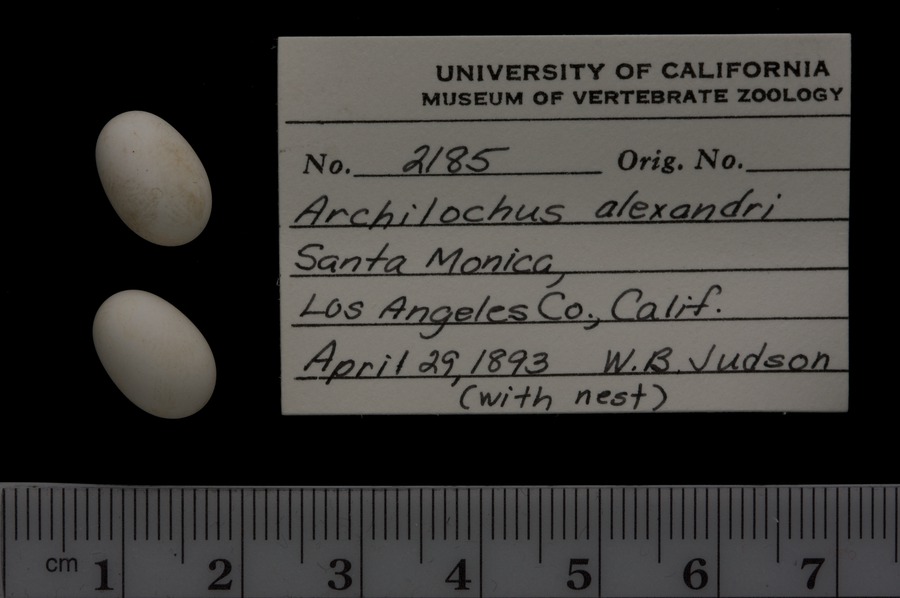 UNIVERSITY OF CALIFORNIA
MUSEUM OF VERTEBRATE ZOOLOGY
No. 2185 Orig. No.
Archilochus alexandri
Santa Monica,
Los Angeles Co., Calif.
April 29, 1893 W.B. Judson
(with nest)
cm 1 2 3 4 5 6 7